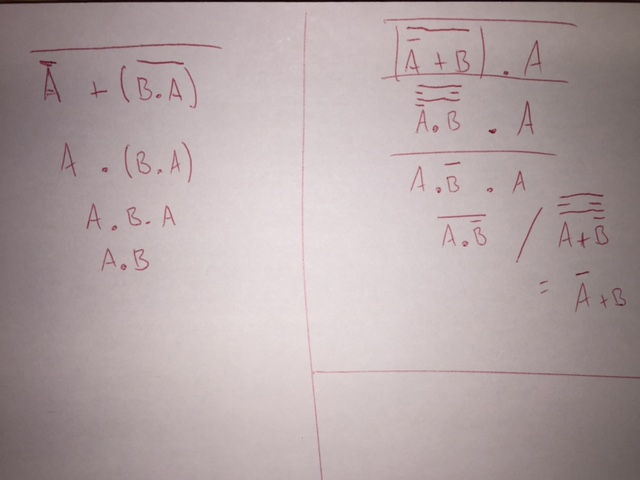 A̅ + (B.A)̅
A . (B.A)
A . B . A
A . B
|A̅ + B| . A
A . B . A
A . B̅ . A
A . B̅ / A + B
= A̅ + B